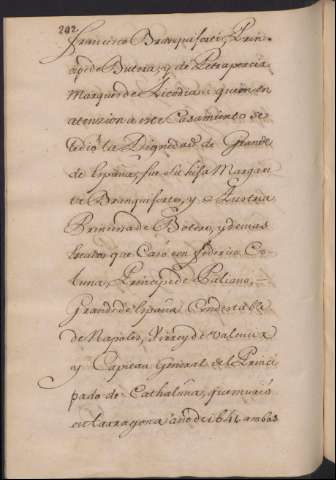 202.
Francisco Branquiforti, Prin-
cipe de Butera, y de Petrapercia
Marques de Licodia; a quien en
atenzion a este Casamiento se
le dio la Dignidad de Grande
de España, fue su hija Margari
ta Branquiforti, y Austria
Princesa de Botero, y demas
estados que Casò con Federico Co-
lunna, Principe de Paliano,
Grande de España Condestable
de Napoles, Virrey de Valencia
y Capitan General del Princi-
pado de Cathaluña, que murio
en tarragona año de 1641 ambos